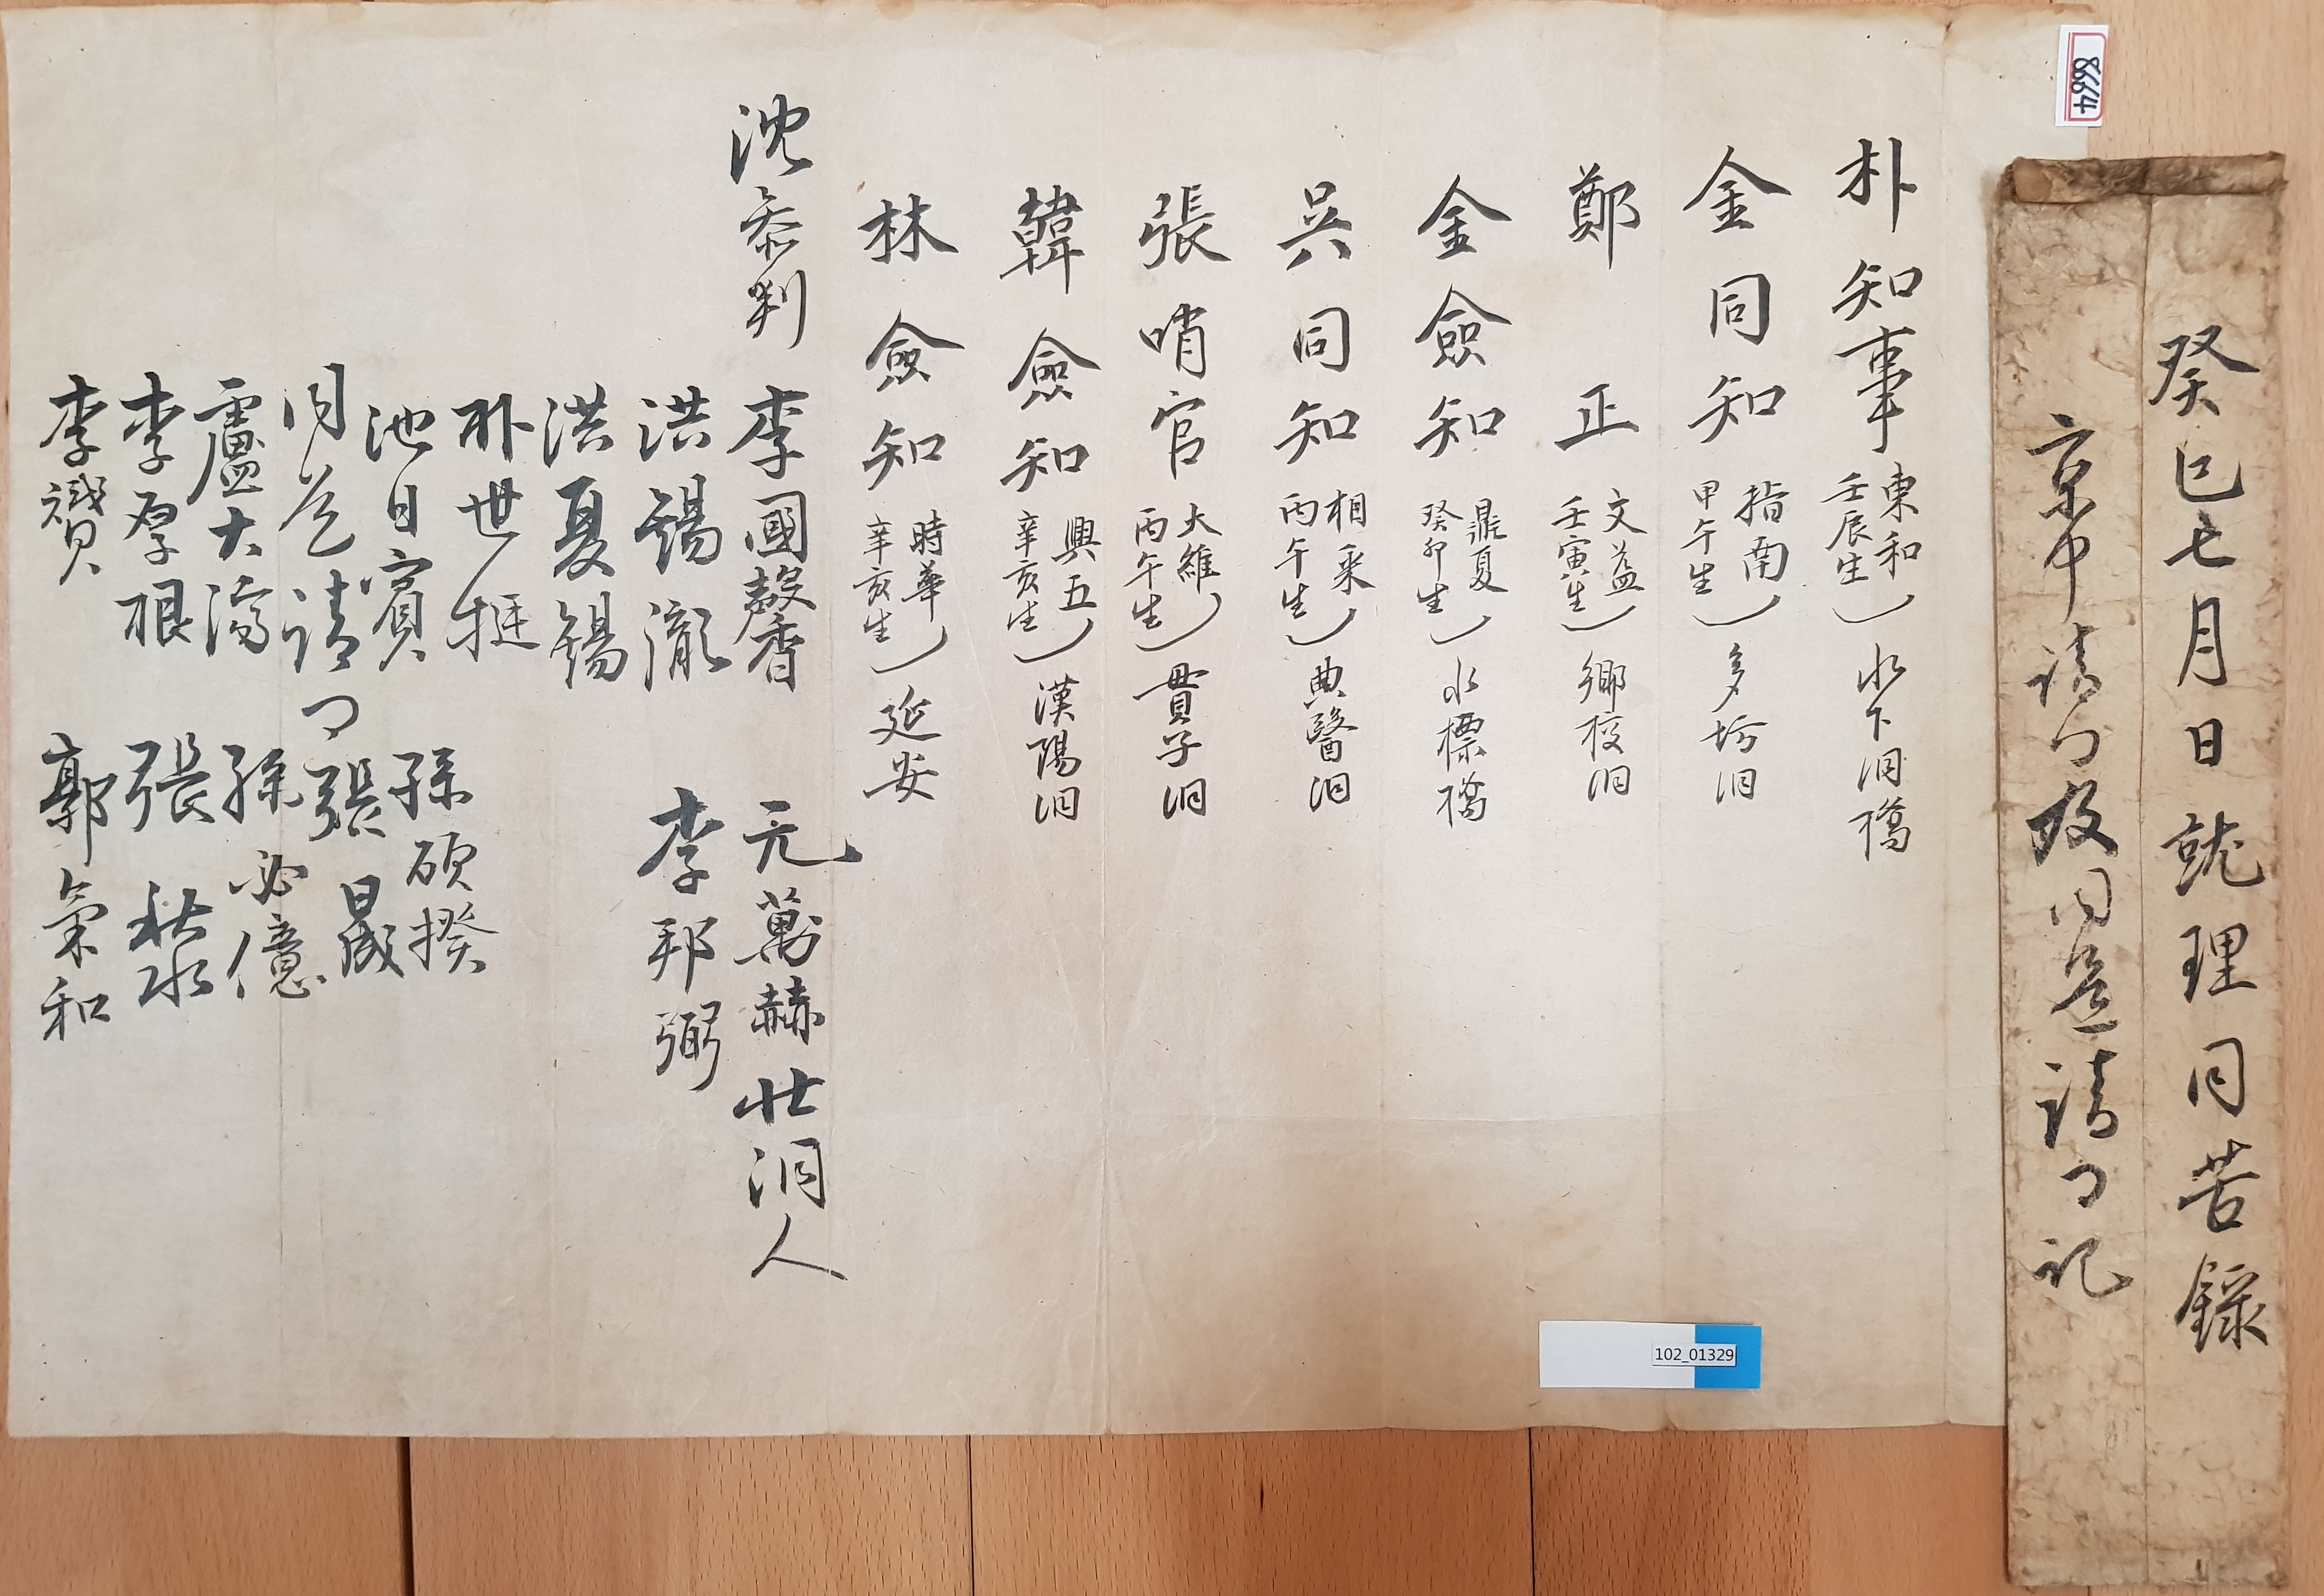 癸巳七月日就理同苦錄
京中請口及同巡請口記
朴知事 東和 壬辰生 水下洞橋
金同知 指南 甲午生 多坊洞
鄭正 文益 壬寅生 鄉校洞
金僉知 鼎夏 癸卯生 水標橋
吳同知 相采 丙午生 典醫洞
張哨官 大維 丙午生 貫子洞
韓僉知 興五 辛亥生 漢陽洞
林僉知 時華 辛亥生 延安
沈參判 李國馨香 元萬赫 壯洞人
洪錫瀧 李邦弼
洪夏錫
朴世挺
池日賓 孫碩揆
同巡請口 張晟
盧大濟 孫必億
李厚根 張秋水
李瓚 郭氣和
8664
102_01329